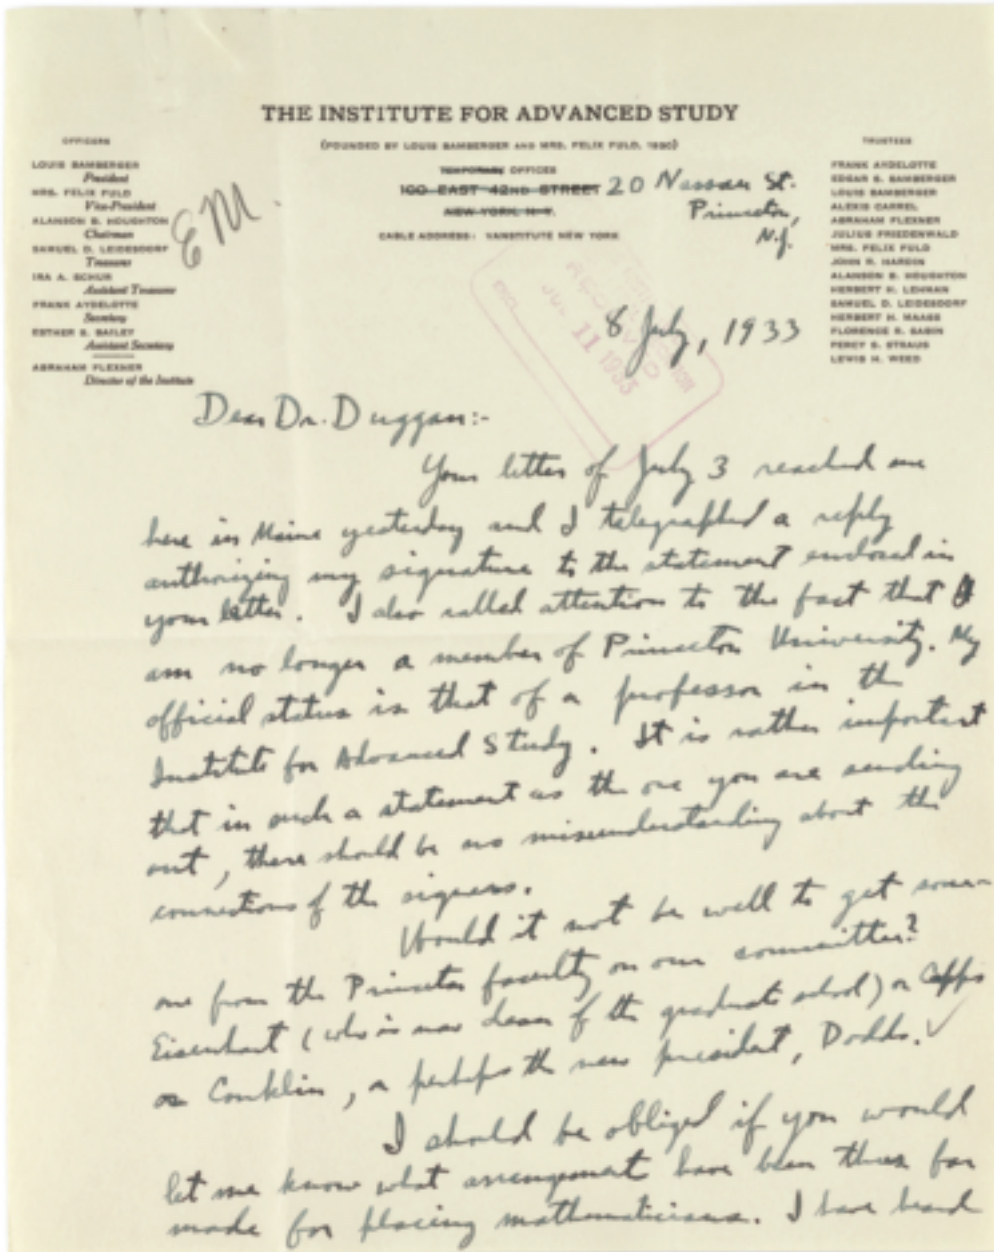 THE INSTITUTE FOR ADVANCED STUDY
(FOUNDED BY LOUIS BAMBERGER AND MRS. FELIX FULD, 1930)
OFFICERS
LOUIS BAMBERGER
President
MRS. FELIX FULD
Vice-President
ALANSON B. HOUGHTON
Chairman
SAMUEL D. LEIDESDORF
Treasurer
IRA A. SCHUR
Assistant Treasurer
FRANK AYDELOTTE
Secretary
ESTHER S. BAILEY
Assistant Secretary
ABRAHAM FLEXNER
Director of the Institute
EM.
TEMPORARY OFFICES
100 EAST 42ND STREET 20 Nassau St.
NEW YORK, N. Y. Princeton,
N.J.
CABLE ADDRESS: VANSTITUTE NEW YORK
TRUSTEES
FRANK AYDELOTTE
EDGAR S. BAMBERGER
LOUIS BAMBERGER
ALEXIS CARREL
ABRAHAM FLEXNER
JULIUS FRIEDENWALD
MRS. FELIX FULD
JOHN R. HARDIN
ALANSON B. HOUGHTON
HERBERT H. LEHMAN
SAMUEL D. LEIDESDORF
HERBERT H. MAASS
FLORENCE R. SABIN
PERCY S. STRAUS
LEWIS H. WEED
JUL 11 1933
8 July, 1933
Dear Dr. Duggan:-
Your letter of July 3 reached me
here in Maine yesterday and I telegraphed a reply
authorizing my signature to the statement enclosed in
your letter. I also called attention to the fact that I
am no longer a member of Princeton University. My
official status is that of a professor in the
Institute for Advanced Study. It is rather important
that in such a statement as the one you are sending
out, there should be no misunderstanding about the
connections of the signers.
Would it not be well to get some-
one from the Princeton faculty on our committee?
Eisenhart (who is now dean of the graduate school) or Capps
or Conklin, or perhaps the new president, Dodds.
I should be obliged if you would
let me know what arrangement have been thus far
made for placing mathematicians. I have heard